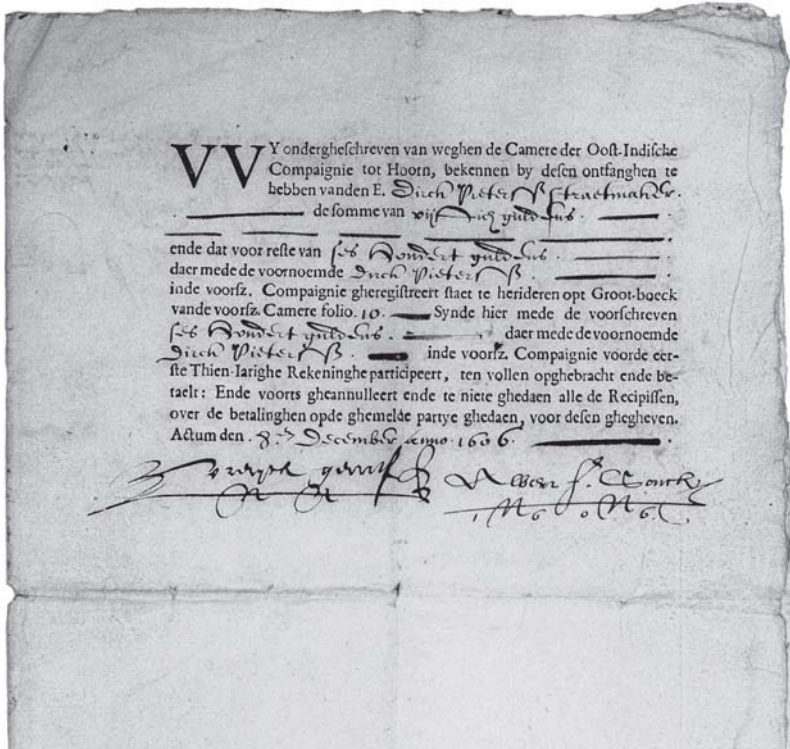 VVY ondergheschreven van weghen de Camere der Oost-Indische
Compaignie tot Hoorn, bekennen by desen ontfanghen te
hebben vanden E. Dirck Pietersz Straetmaker.
de somme van vijftich guldens.
ende dat voor reste van ses hondert guldens.
daer mede de voornoemde Dirck Pietersz.
inde voorsz. Compaignie gheregistreert staet te herideren opt Groot-boeck
vande voorsz. Camere folio. 10. Synde hier mede de voorschreven
ses hondert guldens. daer mede de voornoemde
Dirck Pietersz. inde voorsz. Compaignie voorde eer-
ste Thien-Iarighe Rekeninghe participeert, ten vollen opghebracht ende be-
taelt: Ende voorts gheannulleert ende te niete ghedaen alle de Recipissen,
over de betalinghen opde ghemelde partye ghedaen, voor desen ghegheven.
Actum den. 8. December anno. 1606.